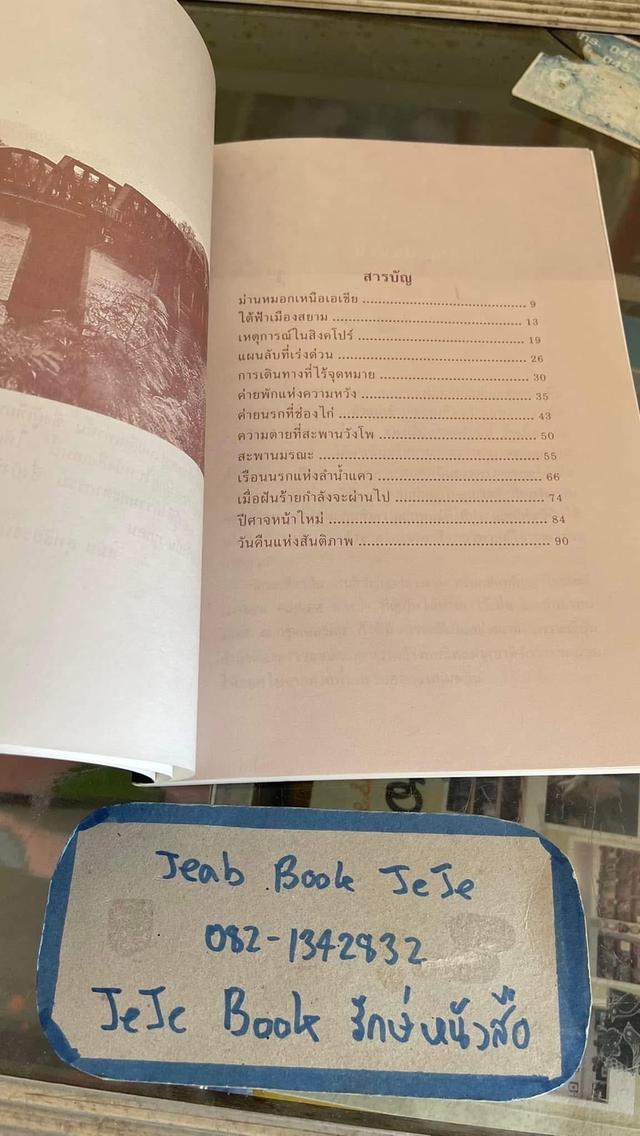 สารบัญ
ม่านหมอกเหนือเอเชีย 9
ใต้ฟ้าเมืองสยาม 13
เหตุการณ์ในสิงคโปร์ 19
แผนลับที่เร่งด่วน 26
การเดินทางที่ไร้จุดหมาย 30
ค่ายพักแห่งความหวัง 35
ค่ายนรกที่ช่องไก่ 43
ความตายที่สะพานวังโพ 50
สะพานมรณะ 55
เรือนนรกแห่งลำน้ำแคว 66
เมื่อฝันร้ายกำลังจะผ่านไป 74
ปีศาจหน้าใหม่ 84
วันคืนแห่งสันติภาพ 90
Jeab Book JeJe
082-1342832
JeJe Book รักษ์หนังสือ